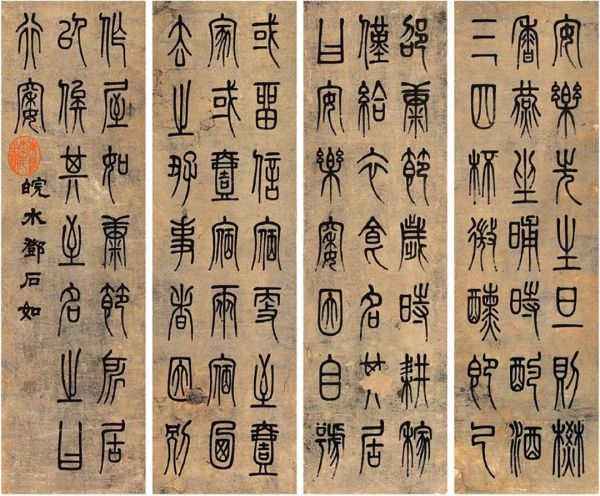 安樂先生旦則焚
香燕坐晡時酌酒
三四杯微醺即已
邵康節歲時耕稼
僅給衣食名其居
曰安樂窩因自號
或留信宿至壹
家或壹宿兩宿
去之好事者因別
作屋如康節所居
以候其至名之曰
行窩
皖水鄧石如